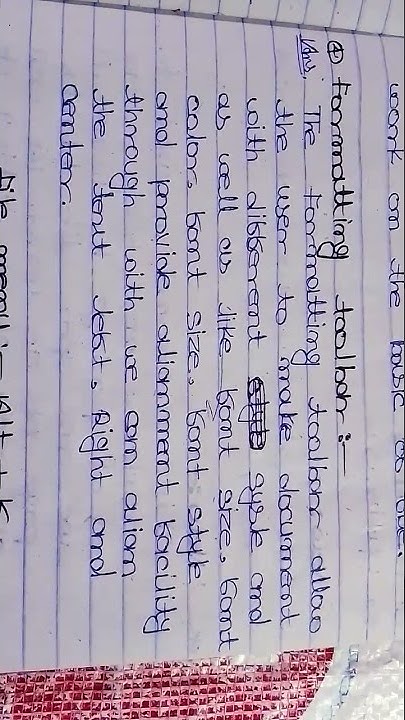 work on the
④ Formatting toolbar :-
Ans. The Formatting toolbar allow
the user to make document
with different style and
as well as like font size, font
color, font size, font style
and provide alignment facility
through with we can align
the font left, Right and
Center.